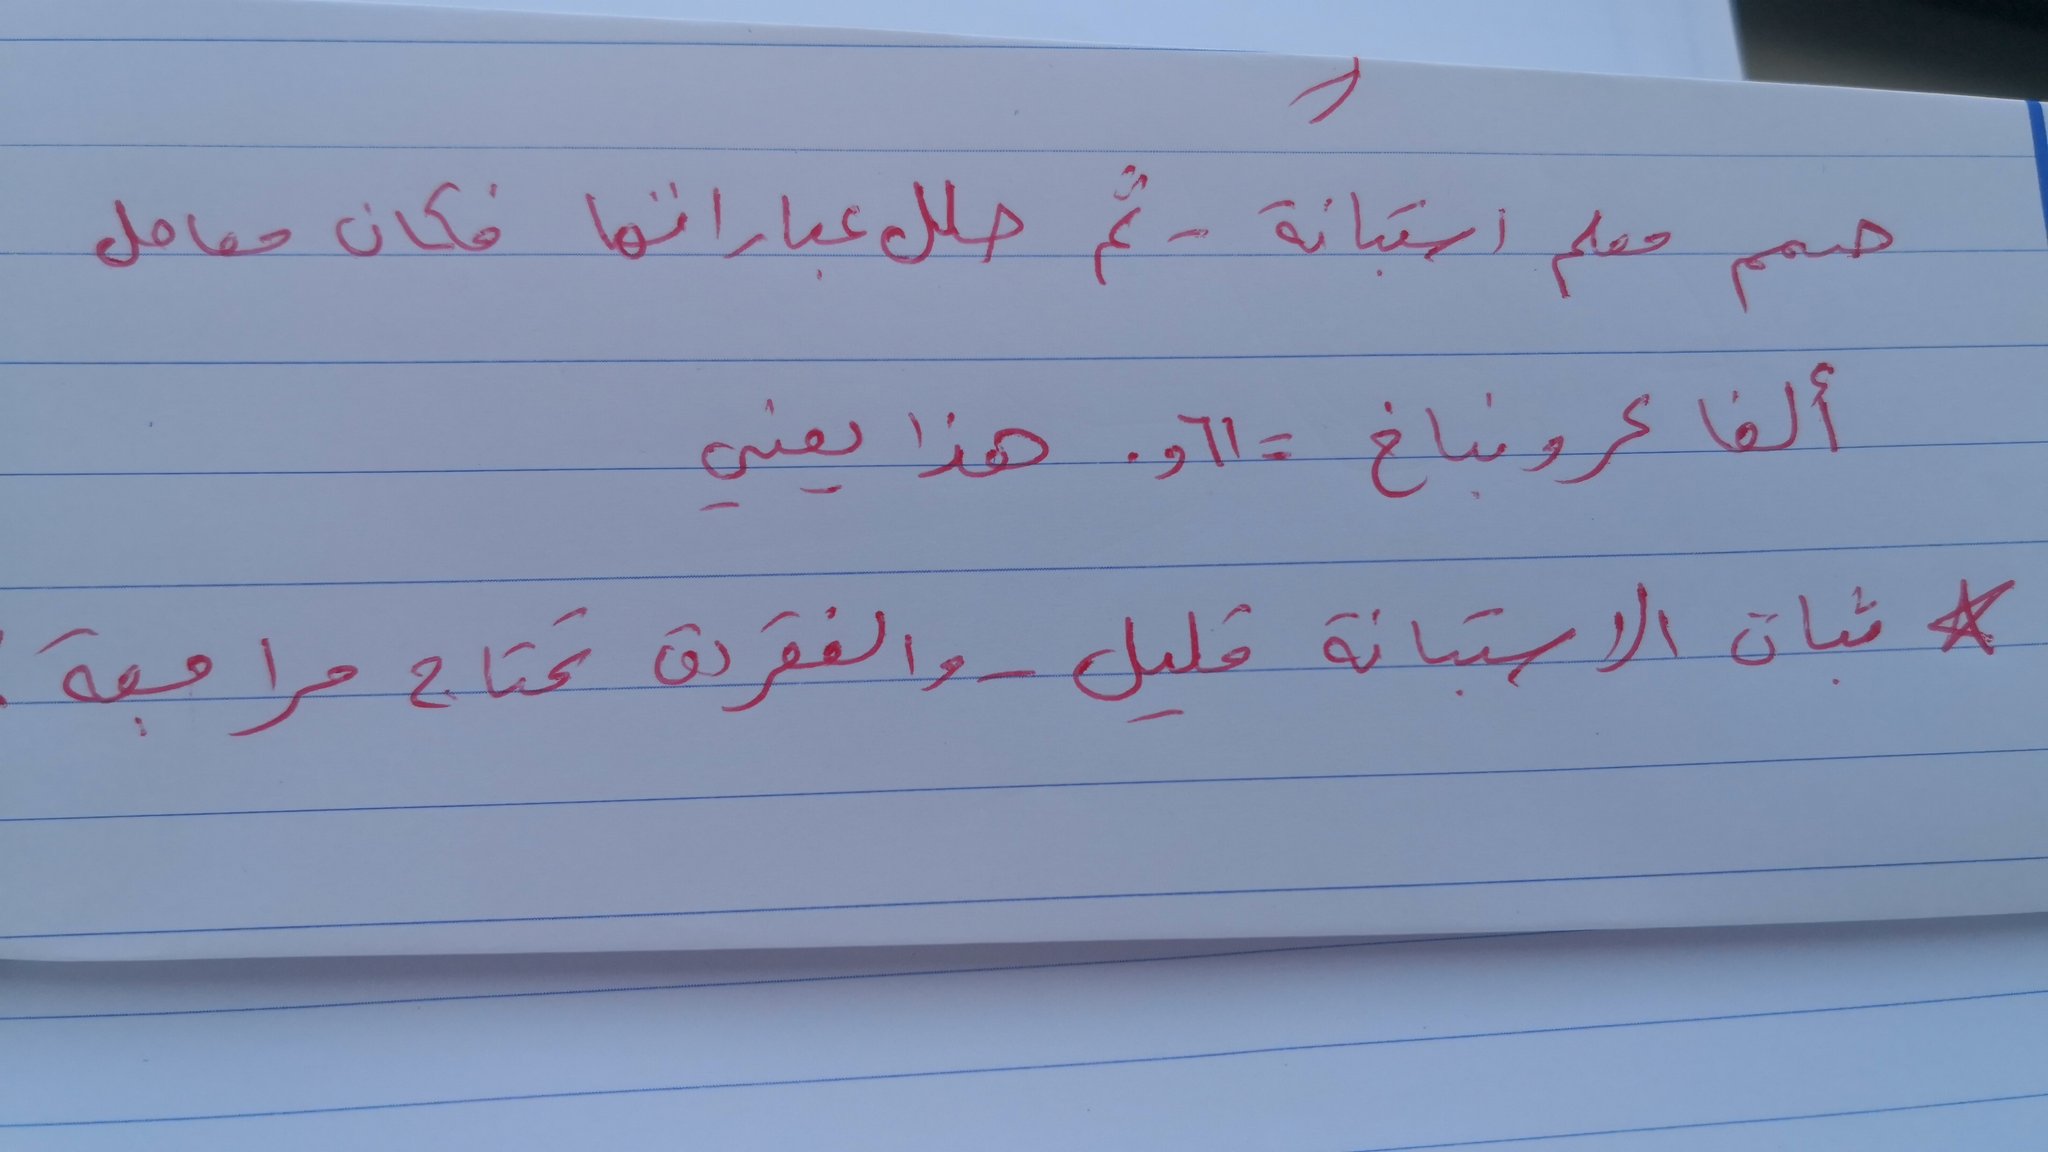 صمم معلم استبانة - ثم حلل عباراتها فكان معامل
ألفا كرونباخ = ٦١و٠ هذا يعني
* ثبات الاستبانة قليل - والفقرات تحتاج مراجعة.